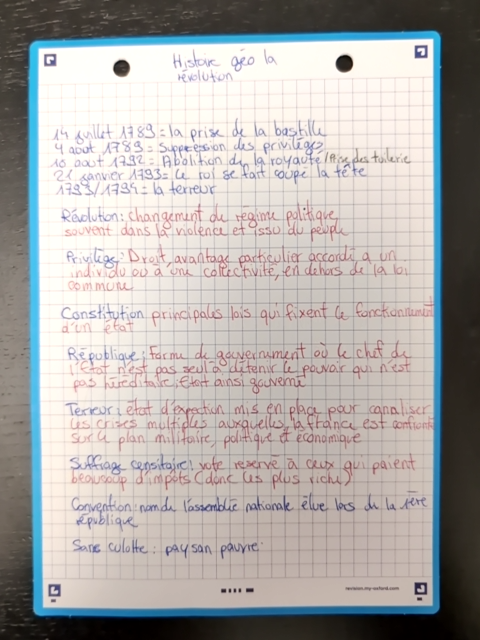 Histoire géo la
révolution
14 juillet 1789 = la prise de la bastille
4 août 1789 = Suppression des privilèges
10 août 1792 = Abolition de la royauté / Prise des tuilerie
21 janvier 1793 = Le roi se fait coupé la tête
1793/1794 = la terreur
Révolution : changement de régime politique,
souvent dans la violence et issu du peuple
Privilège : Droit, avantage particulier accordé a un
individu ou à une collectivité, en dehors de la loi
commune
Constitution principales lois qui fixent le fonctionnement
d'un état
République : Forme de gouvernument où le chef de
l'Etat n'est pas seul à détenir le pouvoir qui n'est
pas héréditaire ; Etat ainsi gouverné
Terreur : état d'exeption mis en place pour canaliser
les crises multiples auxquelles la france est confronté
sur le plan militaire, politique et économique
Suffrage censitaire : vote reservé à ceux qui paient
beaucoup d'impôts (donc les plus riche)
Convention : nom de l'assemblée nationale élue lors de la 1ère
république
Sans culotte : paysan pauvre.
revision.my-oxford.com